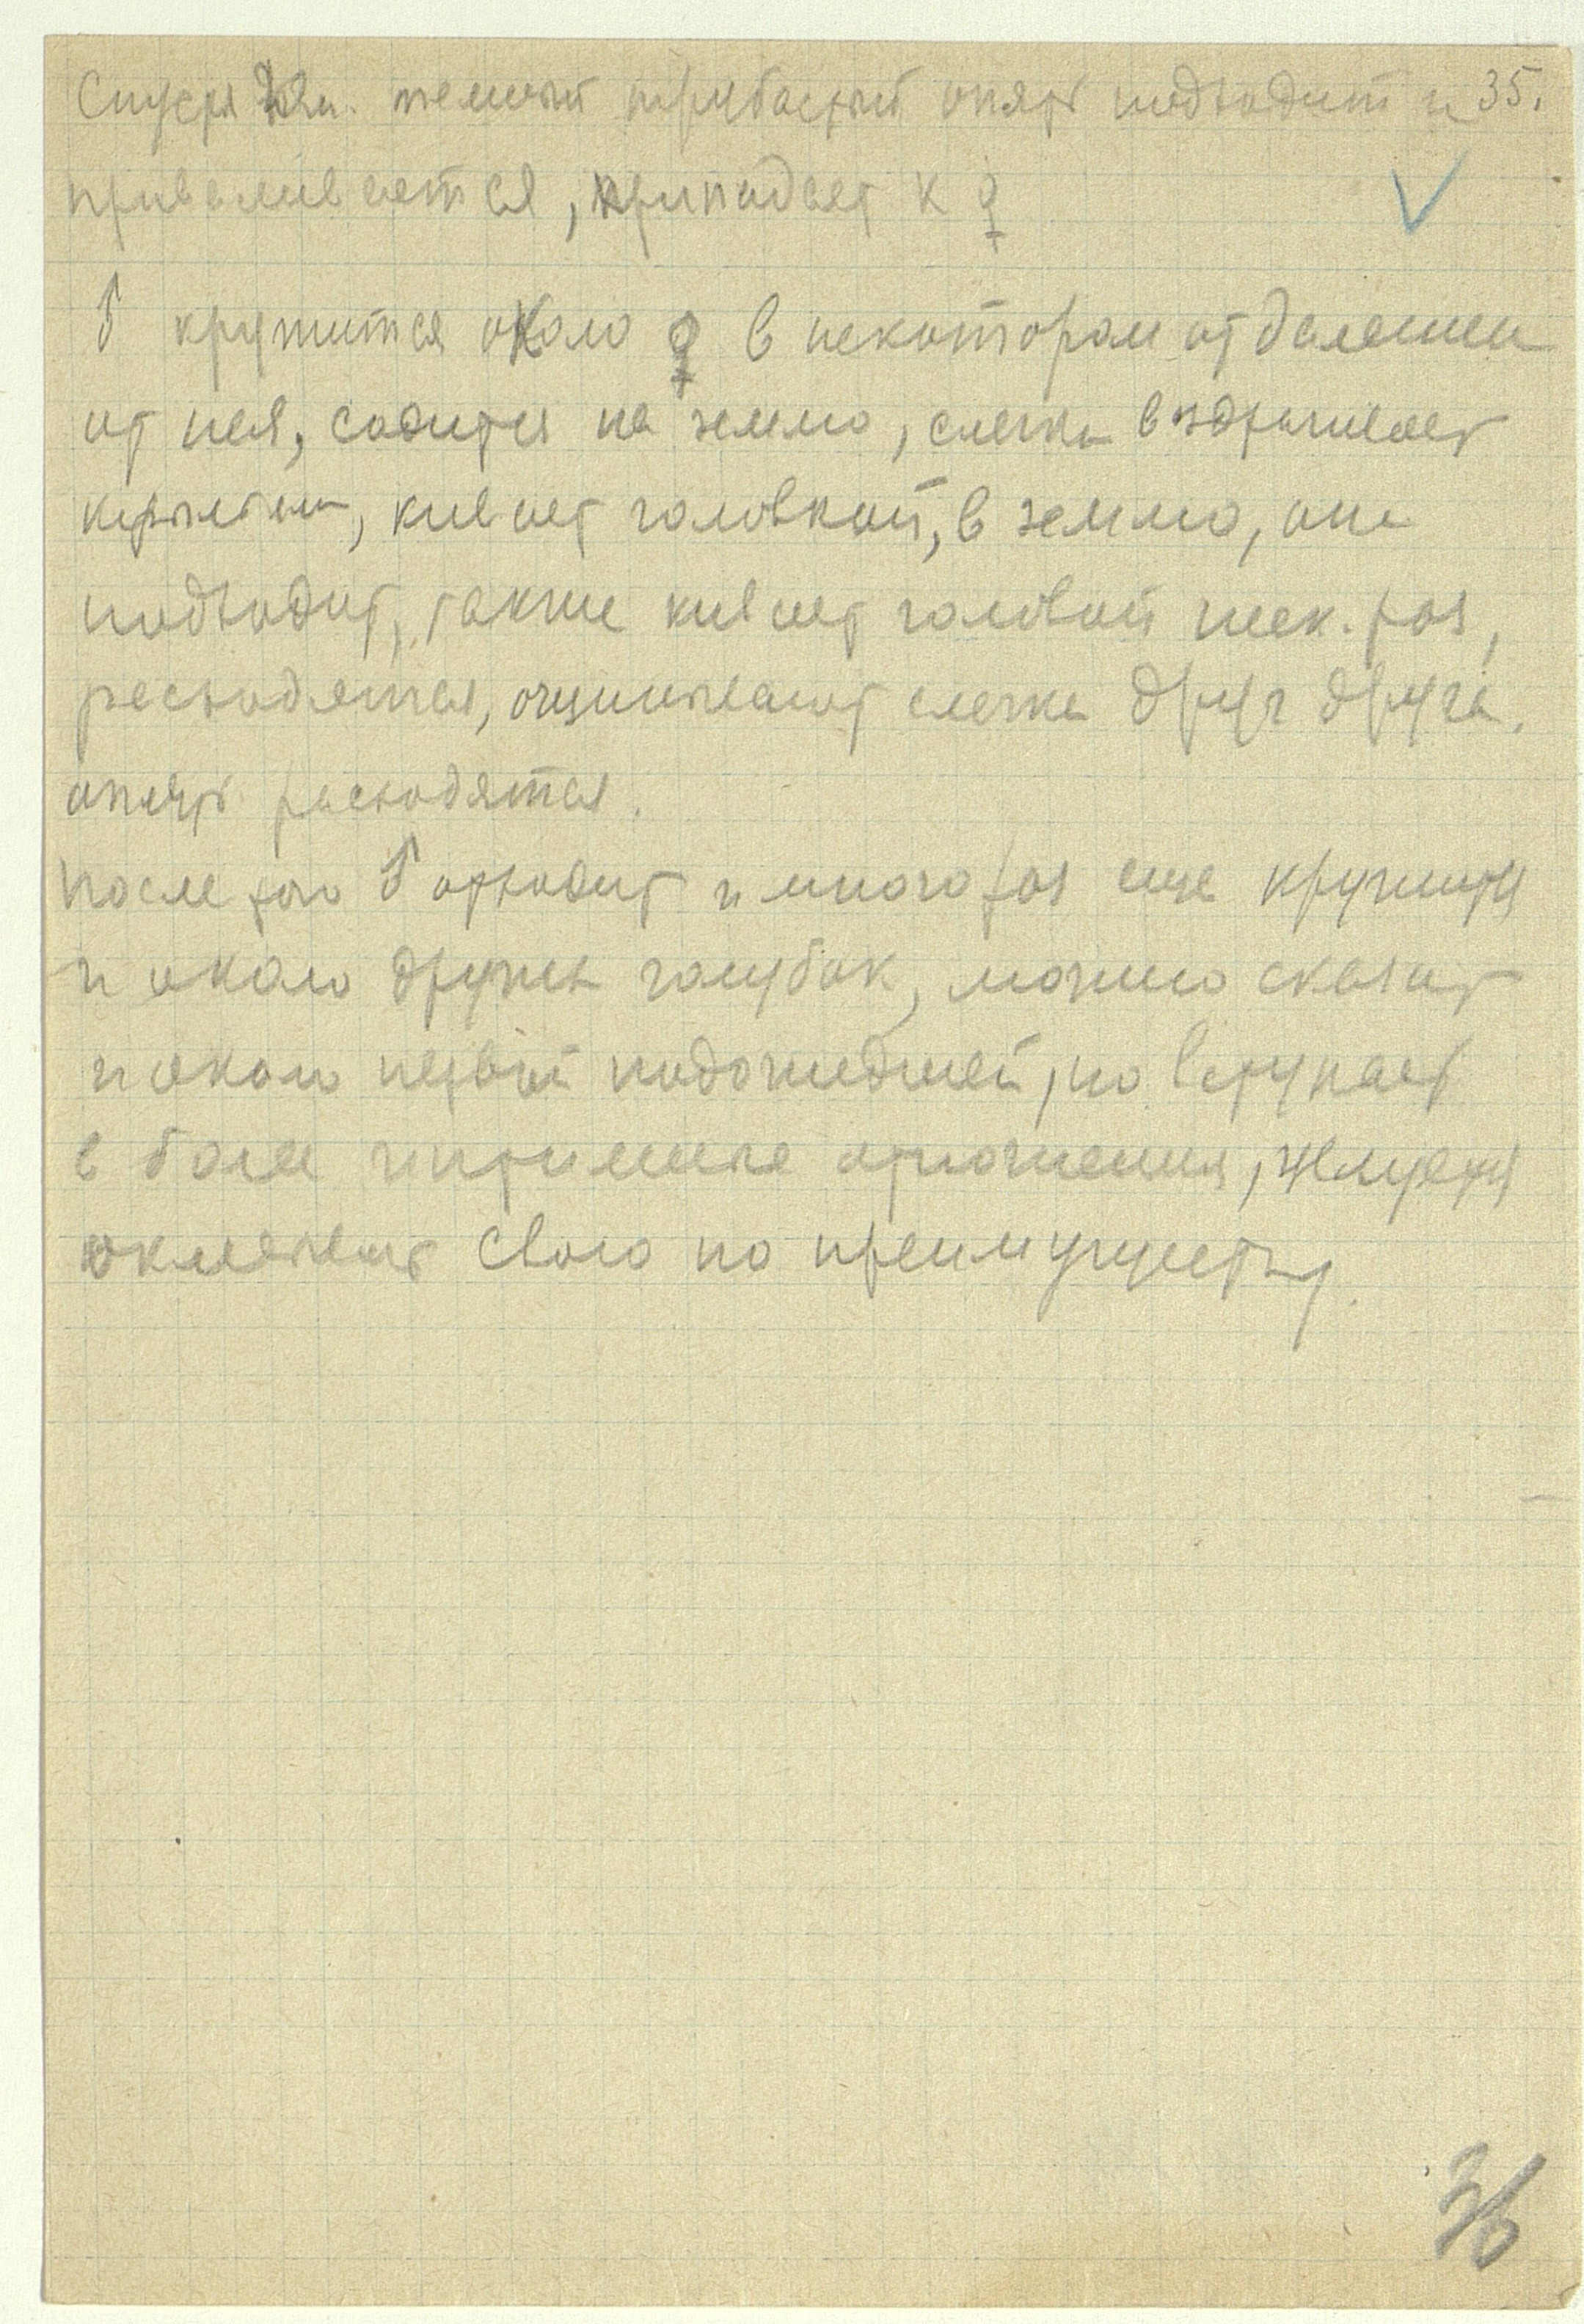 Спустя 2 м. темный трубастый опять подходит и 35.
приваливается, припадает к ♀
♂ кружится около ♀ в некотором отдалении
от нея, садится на землю, слегка вздрагивает
крыльями, кивает головкой, в землю, она
подходит, также кивает головой неск. раз,
расходятся, ощипывают слегка друг друга,
опять расходятся.
После того ♂ отходит и много раз еще кружится
и около других голубок, можно сказать
и около первой подошедшей, но вступает
в более интимные отношения, целуется
свою по преимуществу.
36